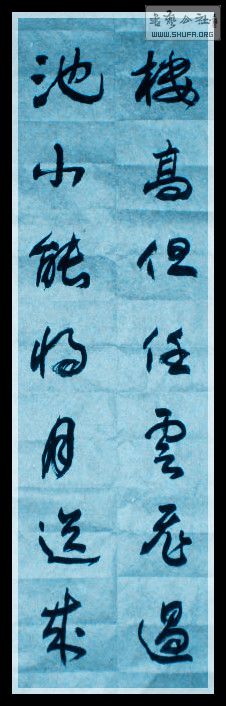 書藝公社
WWW.SHUFA.ORG
樓高但任雲飛過
池小能将月送來